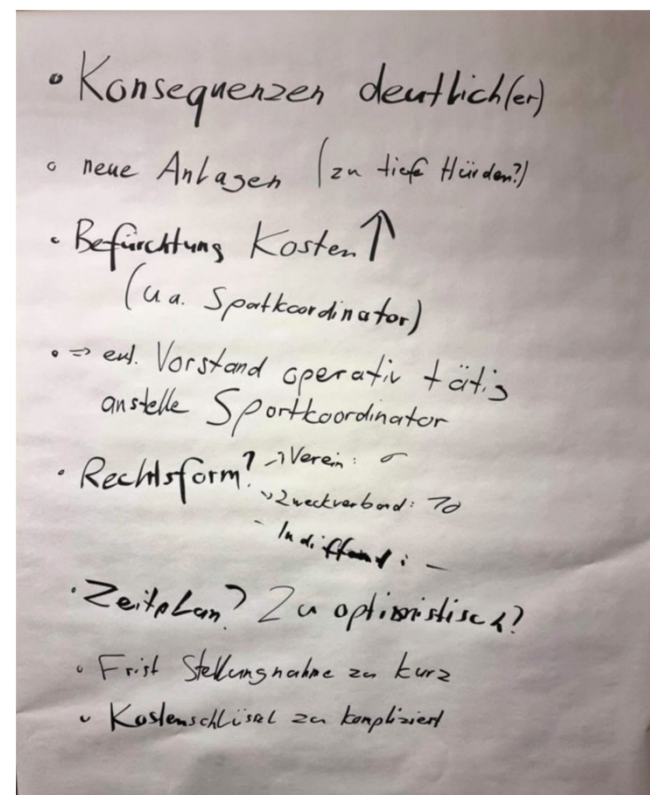 • Konsequenzen deutlich(er)
• neue Anlagen (zu tiefe Hürden?)
• Befürchtung Kosten ↑
(u.a. Sportkoordinator)
• => evt. Vorstand operativ tätig
anstelle Sportkoordinator
• Rechtsform? -> Verein:
-> Zweckverband:
- Indifferent: -
• Zeitplan? Zu optimistisch?
• Frist Stellungnahme zu kurz
• Kostenschlüssel zu kompliziert